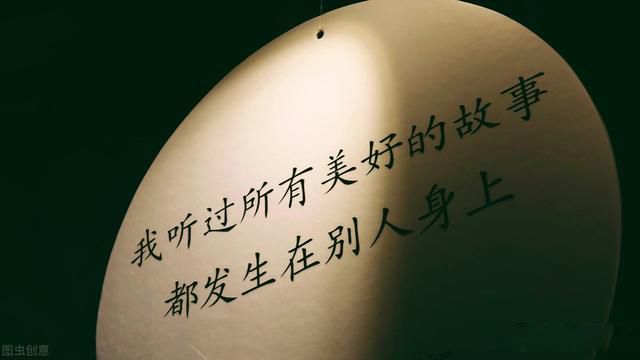 我听过所有美好的故事
都发生在别人身上
图虫创意